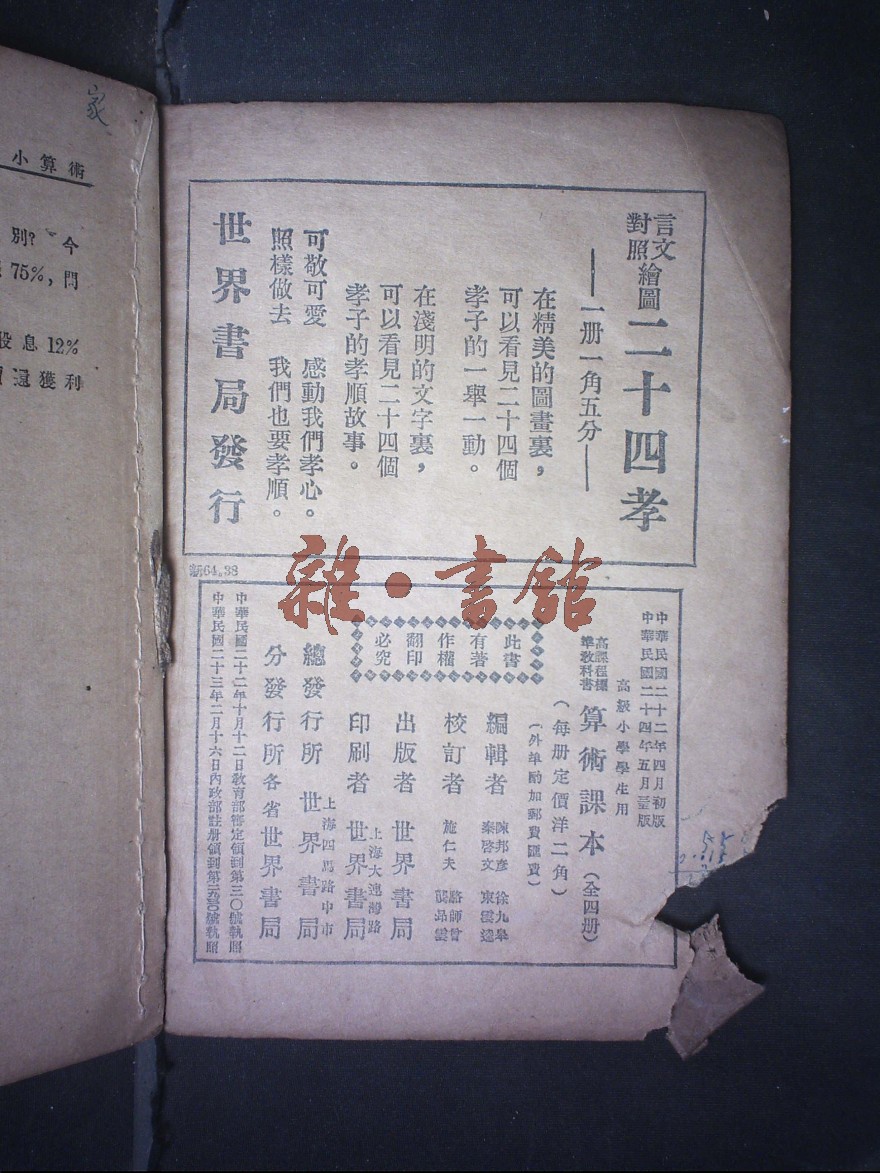 家
小算術
別? 今
75%, 問
股息 12%
還獲利
言文對照繪圖二十四孝
——一册一角五分——
在精美的圖畫裏，
可以看見二十四個
孝子的一舉一動。
在淺明的文字裏，
可以看見二十四個
孝子的孝順故事。
可敬可愛 感動我們孝心。
照樣做去 我們也要孝順。
世界書局發行
新64.38
雜·書館
中華民國二十二年四月初版
中華民國二十四年五月 版
高級小學學生用
高級 課程標準教科書 算術課本（全四册）
（每册定價洋二角）
（外埠酌加郵費匯費）
此書
有著
作權
翻印
必究
編輯者 陳邦彥 徐九皋
秦啓文 束雲逵
校訂者 施仁夫 駱師曾
龔昂雲
出版者 世界書局
印刷者 上海大連灣路 世界書局
總發行所 上海四馬路中市 世界書局
分發行所 各省世界書局
中華民國二十二年十月十二日教育部審定領到第三〇號執照
中華民國二十三年二月十六日內政部註册領到第 號執照